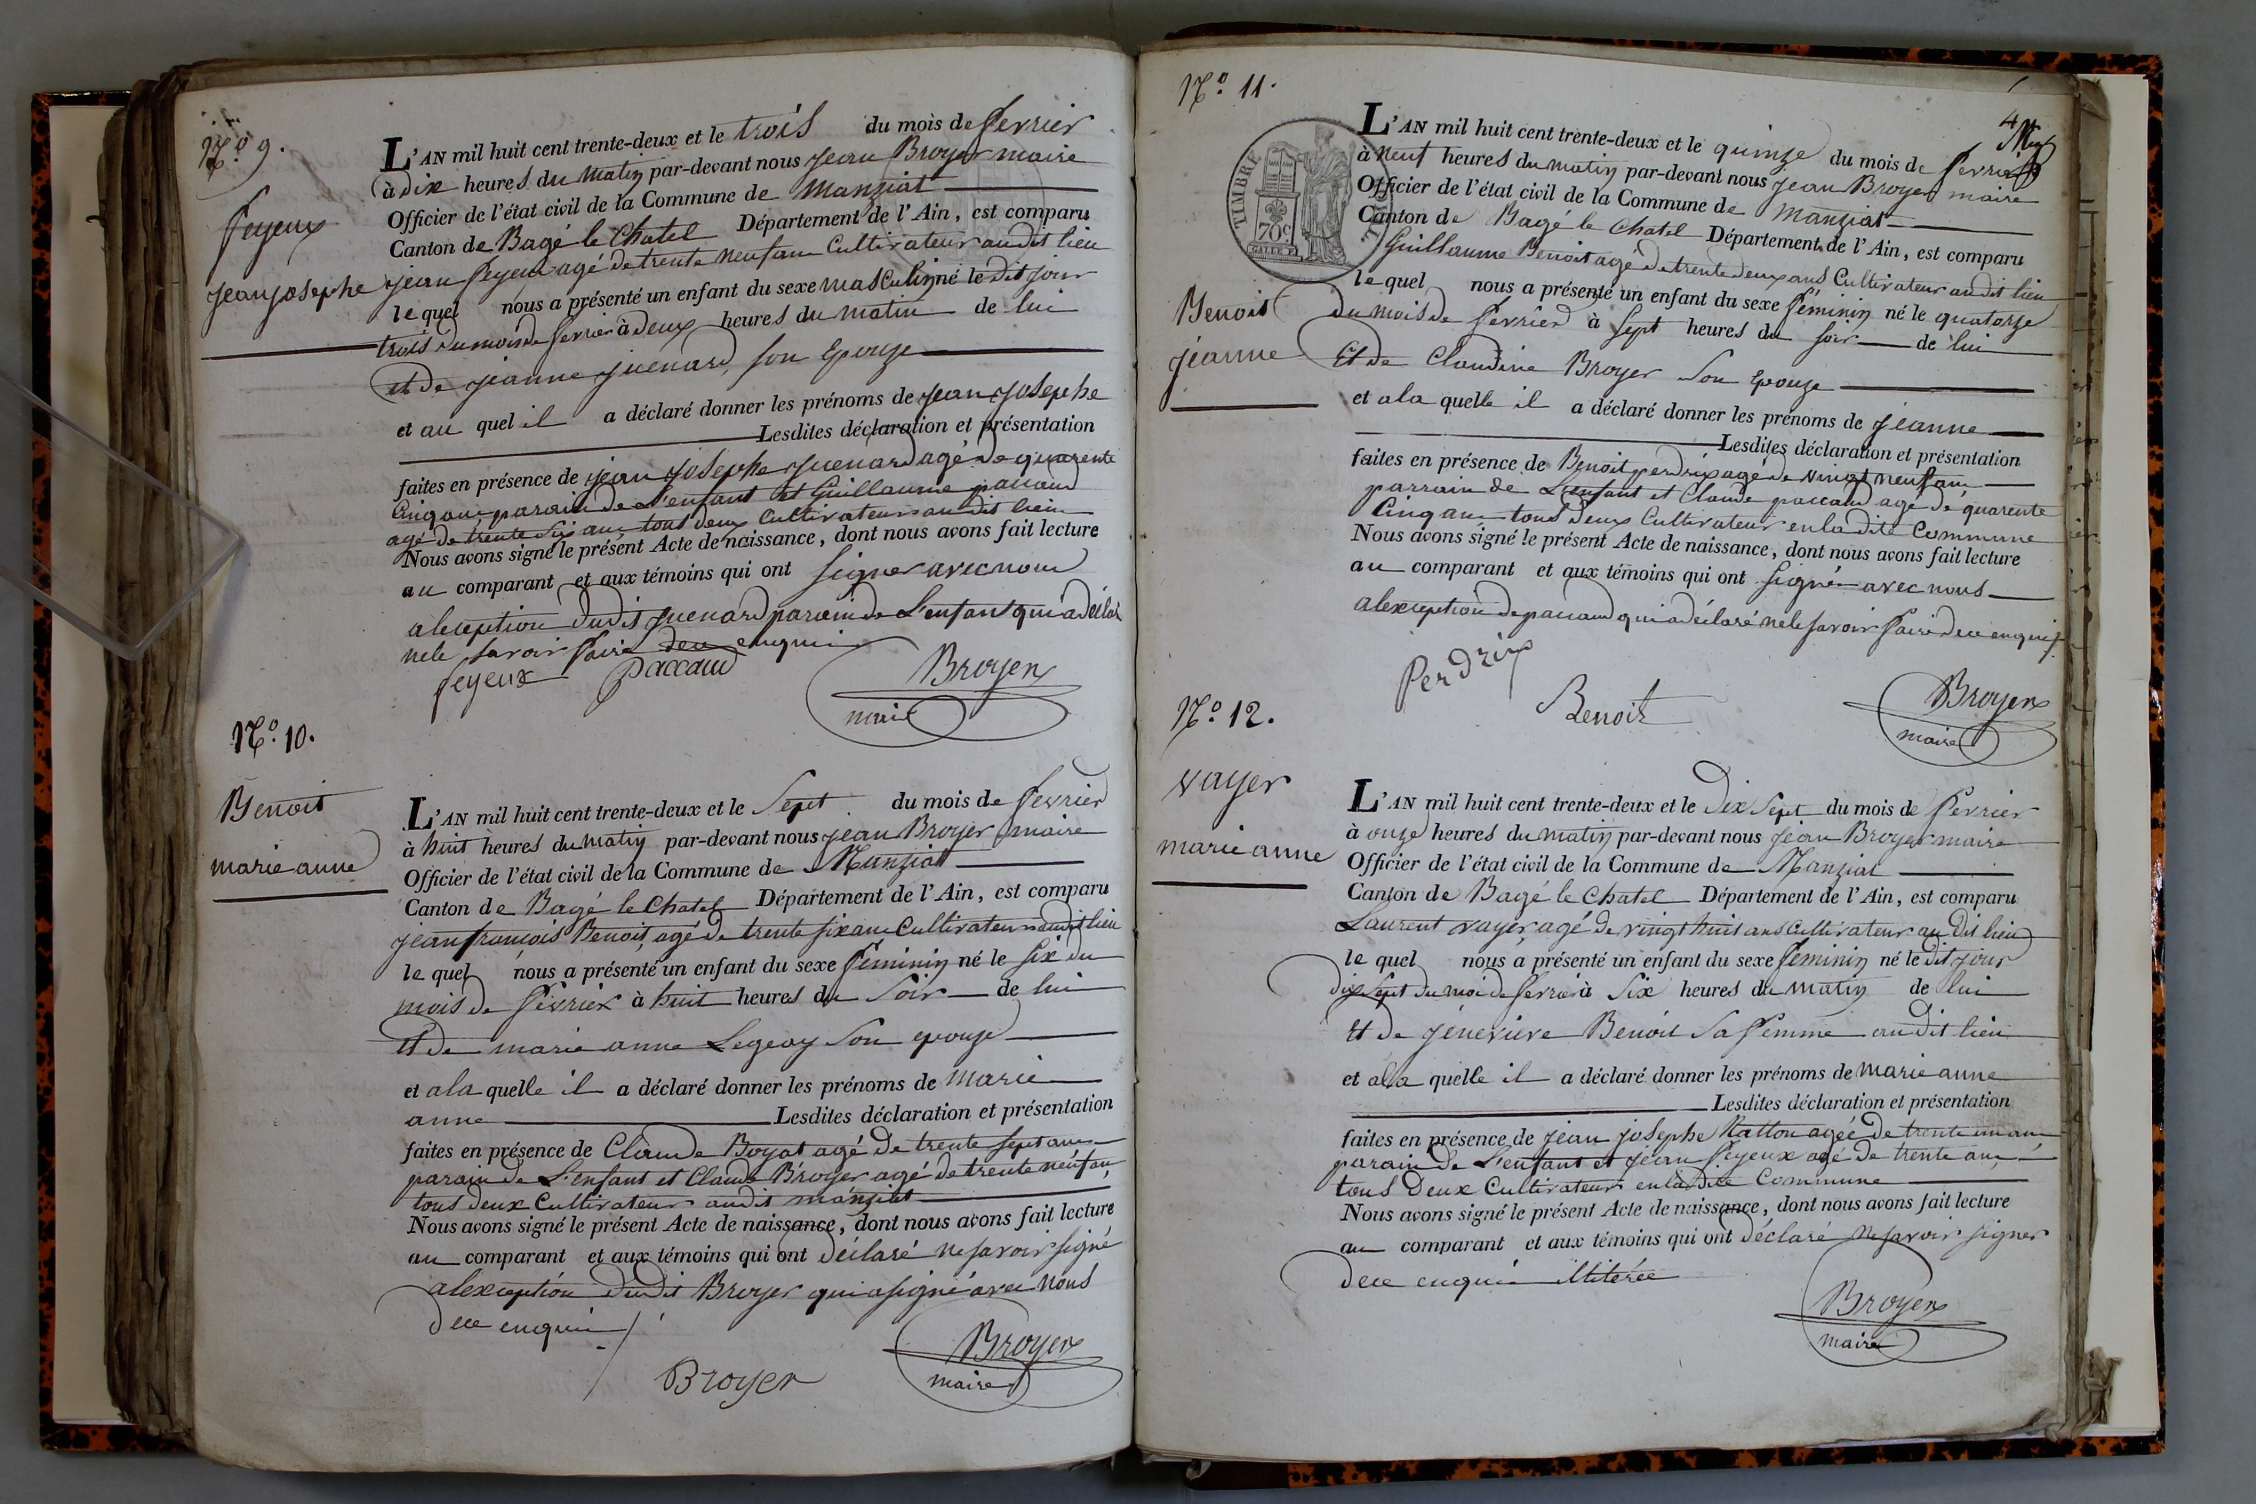 N.º 9.
feyeux
jean josephe
L'AN mil huit cent trente-deux et le trois du mois de fevrier
à dix heures du matin par-devant nous jean Broyer maire
Officier de l'état civil de la Commune de manziat
Canton de Bagé le Chatel Département de l'Ain, est comparu
jean feyeux agé de trente neuf ans Cultivateur audit lieu
le quel nous a présenté un enfant du sexe masculin né le dit jour
trois du mois de fevrier à deux heures du matin de lui
et de jeanne juenard, son Epouze
et au quel il a déclaré donner les prénoms de jean josephe
Lesdites déclaration et présentation
faites en présence de jean josephe juenard agé de quarente
Cinq ans parain de l'enfant et Guillaume paccaud
agé de trente six ans, tous deux Cultivateurs audit lieu
Nous avons signé le présent Acte de naissance, dont nous avons fait lecture
au comparant et aux témoins qui ont signer avec nous
alexception dudit juenard parain de L'enfant qui a déclaré
ne le savoir faire de ce enquis
feyeux paccaud Broyer
maire
N.º 10.
Benoit
marie anne
L'AN mil huit cent trente-deux et le Sept du mois de fevrier
à huit heures du matin par-devant nous jean Broyer maire
Officier de l'état civil de la Commune de Manziat
Canton de Bagé le Chatel Département de l'Ain, est comparu
jean francois Benoit, agé de trente six ans Cultivateur audit lieu
le quel nous a présenté un enfant du sexe féminin né le six du
mois de fevrier à huit heures du Soir de lui
et de marie anne Legeay Son epouze
et ala quelle il a déclaré donner les prénoms de marie
anne Lesdites déclaration et présentation
faites en présence de Claude Boyat agé de trente sept ans
parain de L'enfant et Claude Broyer agé de trente neuf ans,
tous deux Cultivateurs audit manziat
Nous avons signé le présent Acte de naissance, dont nous avons fait lecture
au comparant et aux témoins qui ont déclaré ne savoir signé
alexception dudit Broyer qui a signé avec nous
de ce enquis
Broyer Broyer
maire
N.º 11.
4
TIMBRE
70c
Benoit
jeanne
L'AN mil huit cent trente-deux et le quinze du mois de fevrier
à neuf heures du matin par-devant nous jean Broyer maire
Officier de l'état civil de la Commune de manziat
Canton de Bagé le Chatel Département de l'Ain, est comparu
Guillaume Benoit agé de trente deux ans Cultivateur audit lieu
le quel nous a présenté un enfant du sexe féminin né le quatorze
du mois de fevrier à sept heures du soir de lui
Et de Claudine Broyer Son Epouze
et ala quelle il a déclaré donner les prénoms de jeanne
Lesdites déclaration et présentation
faites en présence de Benoit perdrix agé de vingt neuf ans
parrain de L'enfant et Claude paccaud agé de quarente
Cinq ans tous deux Cultivateur en la dite Commune
Nous avons signé le présent Acte de naissance, dont nous avons fait lecture
au comparant et aux témoins qui ont signé avec nous
alexception de paccaud qui a déclaré ne le savoir faire de ce enquis
Perdrix
Benoit Broyer
maire
N.º 12.
vayer
marie anne
L'AN mil huit cent trente-deux et le Dix Sept du mois de fevrier
à onze heures du matin par-devant nous jean Broyer maire
Officier de l'état civil de la Commune de Manziat
Canton de Bagé le Chatel Département de l'Ain, est comparu
Laurent vayer agé de vingt huit ans Cultivateur au dit lieu
le quel nous a présenté un enfant du sexe féminin né le dit jour
dix sept du moi de fevrier à Six heures du matin de lui
Et de jenevieve Benoit Sa femme au dit lieu
et ala quelle il a déclaré donner les prénoms de marie anne
Lesdites déclaration et présentation
faites en présence de jean josephe Natton agée de trente un ans
parain de L'enfant et jean feyeux agé de trente ans
tous Deux Cultivateurs en ladite Commune
Nous avons signé le présent Acte de naissance, dont nous avons fait lecture
au comparant et aux témoins qui ont déclaré ne savoir signer
de ce enquis illiterée
Broyer
maire